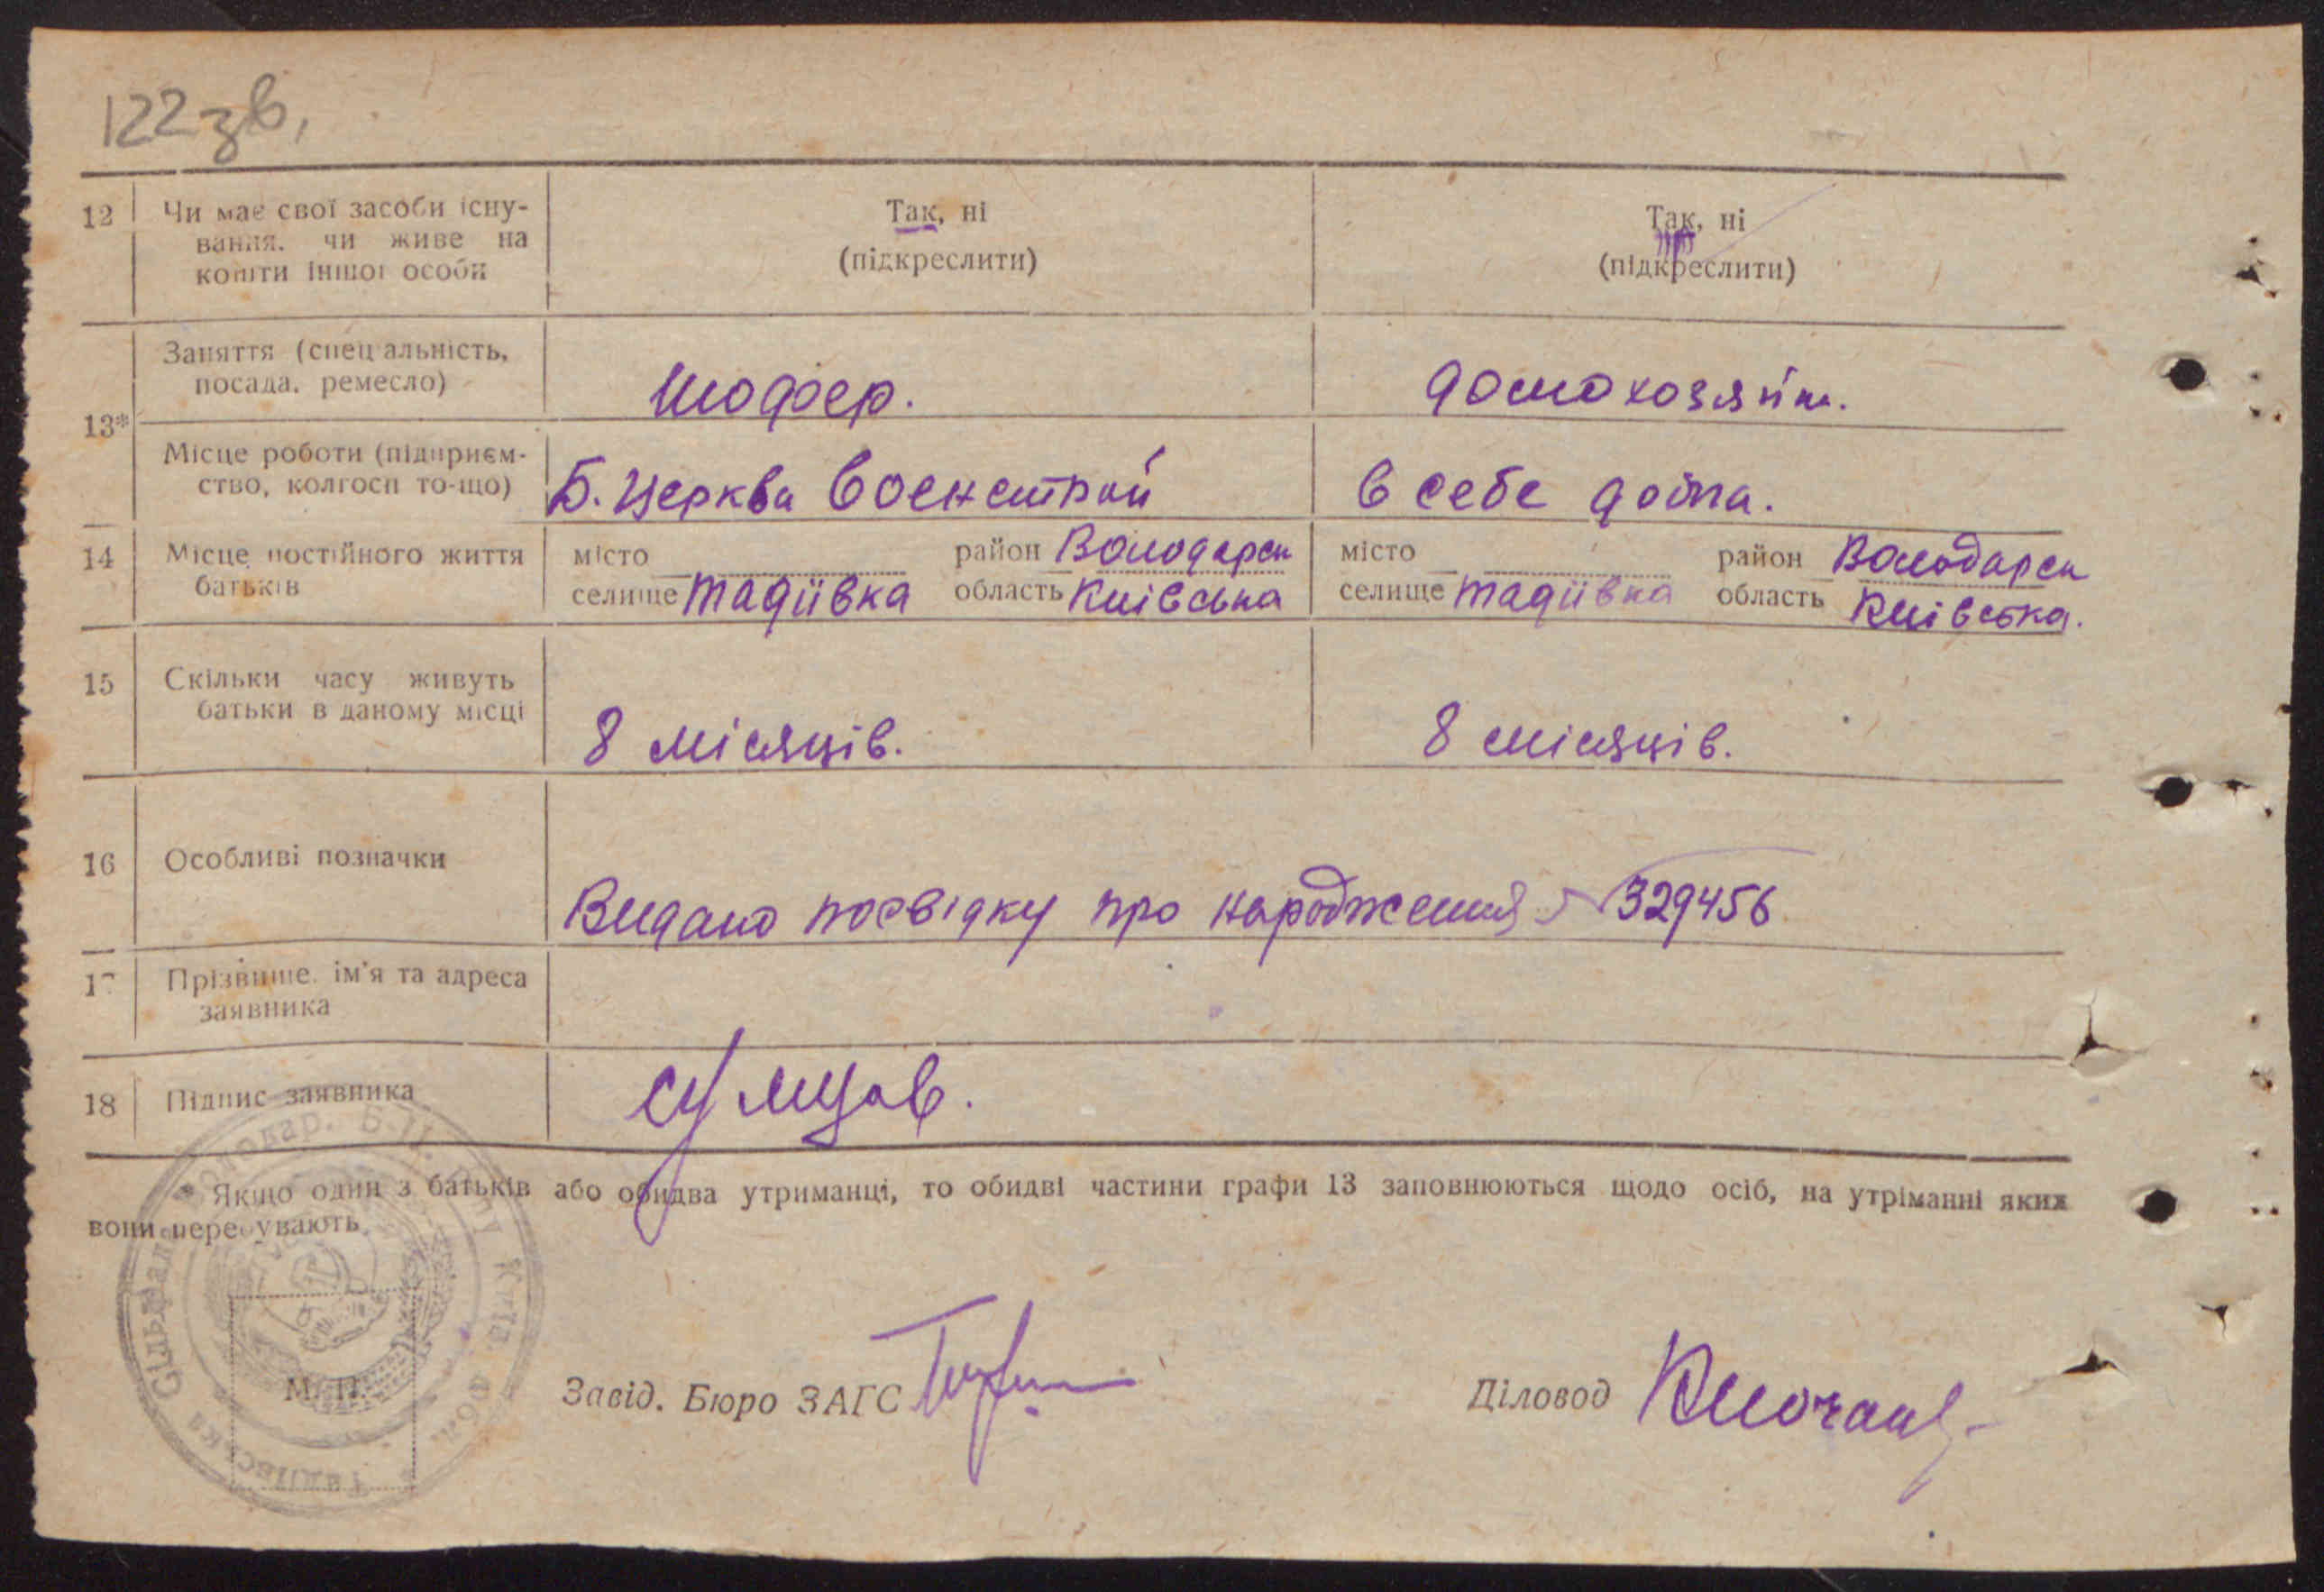 122зв,
12 Чи має свої засоби існу- Так, ні Так, ні
вання. чи живе на (підкреслити) (підкреслити)
кошти іншої особи
Заняття (спеціальність, Шофер. домохозяйк.
посада. ремесло)
13*
Місце роботи (підприєм- Б. Церква Военстрой в себе дома.
ство, колгосп то-що)
14 Місце постійного життя місто район Володарск місто район Володарск
батьків селище Тадіївка область Київська селище Тадіївка область Київська.
15 Скільки часу живуть
батьки в даному місці 8 місяців. 8 місяців.
16 Особливі позначки
Видано посвідку про народження 329456
17 Прізвище. ім'я та адреса
заявника
18 Підпис заявника Сумцов.
* Якщо один з батьків або обидва утриманці, то обидві частини графи 13 заповнюються щодо осіб, на утріманні яких
вони перебувають.
М. П. Завід. Бюро ЗАГС Діловод